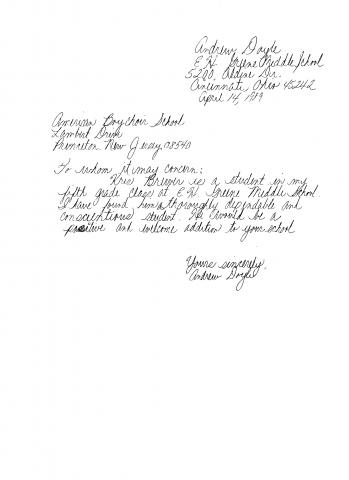 Andrew Doyle
E.H. Greene Middle School
5200 Aldine Dr.
Cincinnati Ohio 45242
April 14, 1989
American Boychoir School
Lambert Drive
Princeton New Jersey 08540
To whom it may concern:
Kris is a student in my
fifth grade class at E.H. Greene Middle School
I have found him a thoroughly dependable and
conscientious student. He would be a
positive and welcome addition to your school
Yours sincerely,
Andrew Doyle